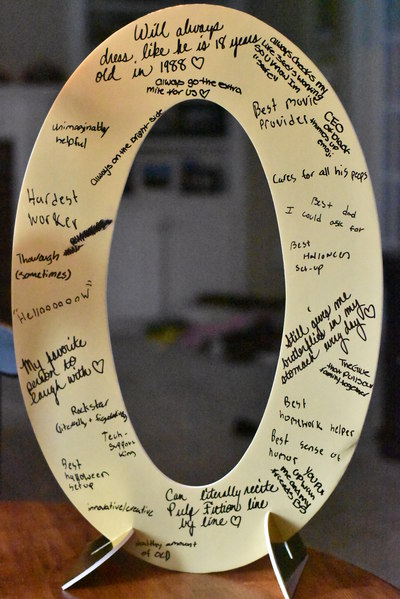 Will always
dress like he is 18 years
old in 1988 ♡
always go the extra
mile for us ♡
always checks my
Life 360 is working
so I know I'm
Best movie
provider
CEO
of Dad
thumbs up
emoji
Cares for all his peeps
Best dad
I could ask for
Best
Halloween
set-up
Still gives me
butterflies in my
stomach every day ♡
The Glue
that puts our
family together
Best
homework helper
Best sense of
humor
You put
up with
me and my
friends
Can literally recite
Pulp Fiction line
by line ♡
healthy amount
of OCD
innovative/creative
Best
halloween
setup
Tech-
Support
King
Rockstar
(literally + figuratively)
My favorite
person to
laugh with ♡
"Hellooooow"
Thorough
(sometimes)
Hardest
worker
unimaginably
helpful
always on the bright side